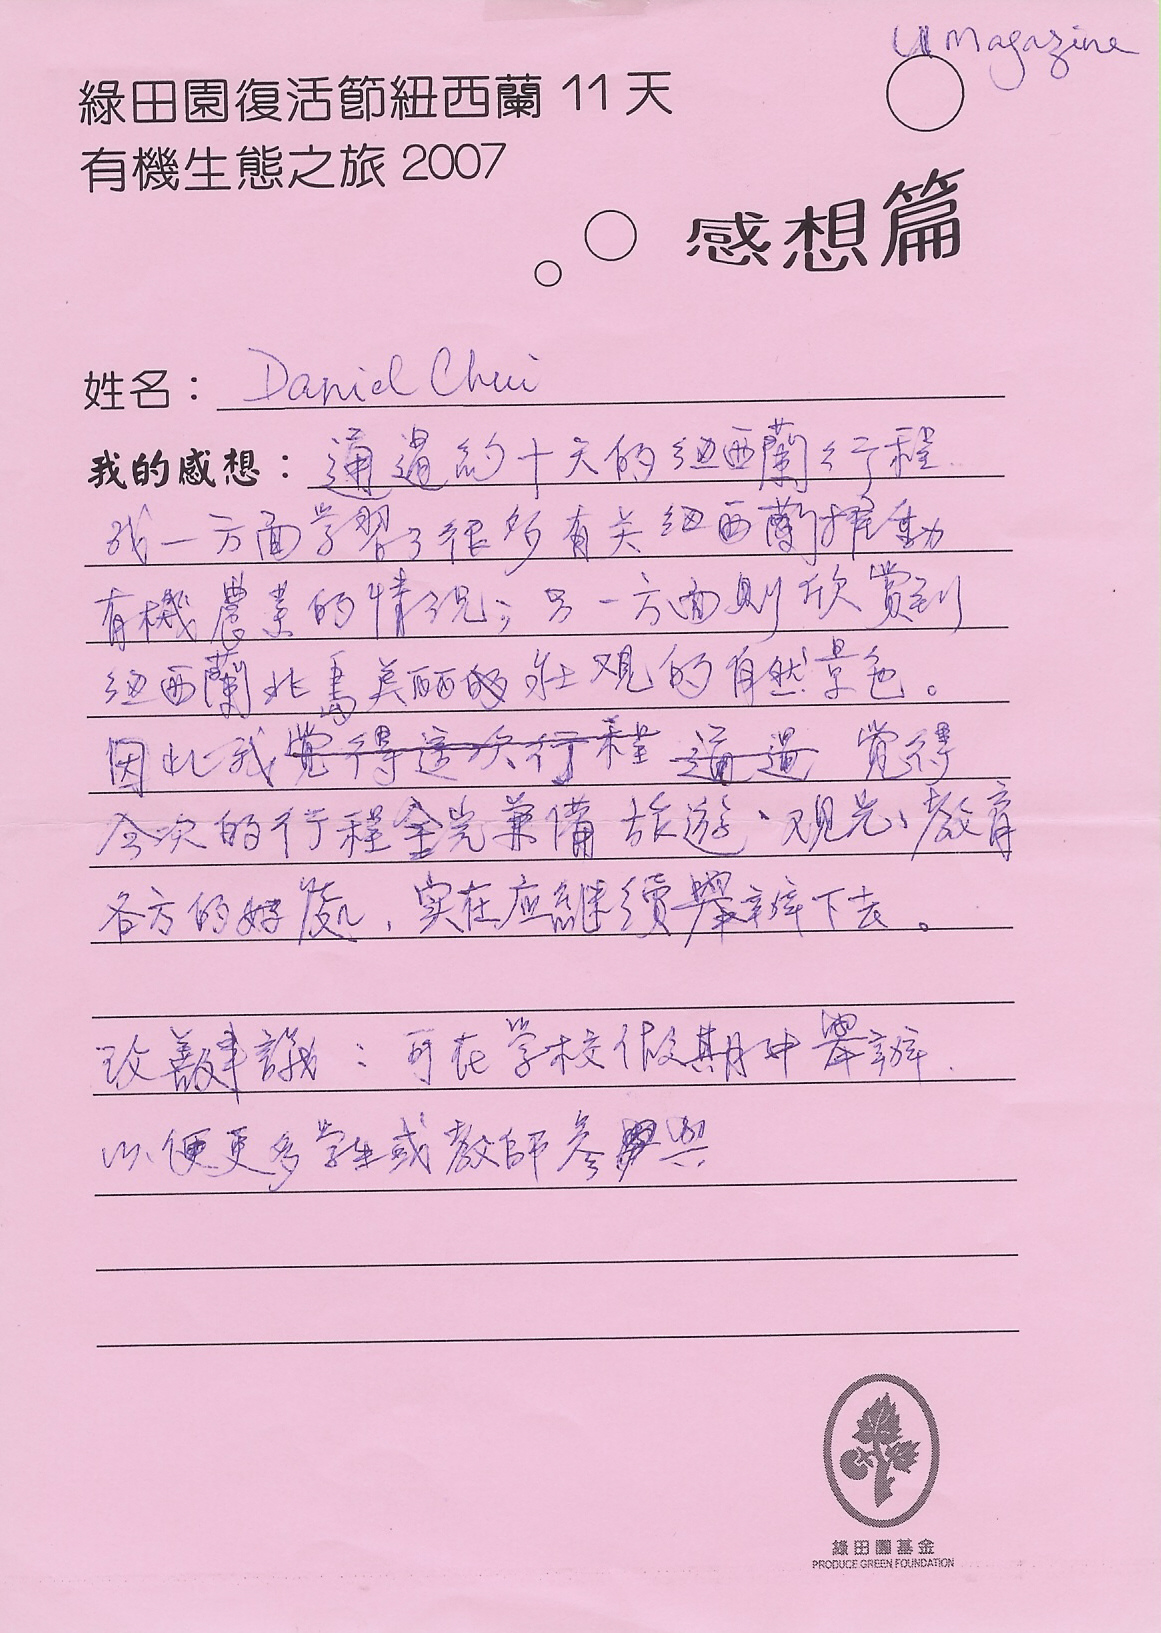 U Magazine
綠田園復活節紐西蘭 11 天
有機生態之旅 2007
感想篇
姓名： Daniel Chui
我的感想： 通過約十天的紐西蘭行程
我一方面学習了很多有关紐西蘭推動
有機農業的情况；另一方面則欣賞到
紐西蘭北島美丽的壮观的自然景色。
因此我觉得這次行程 通過 觉得
今次的行程完全兼備旅遊、观光、教育
各方的好處，实在应継續舉辦下去。
改善建議：可在学校假期中舉辦
以便更多学生或教師参與
綠田園基金
PRODUCE GREEN FOUNDATION